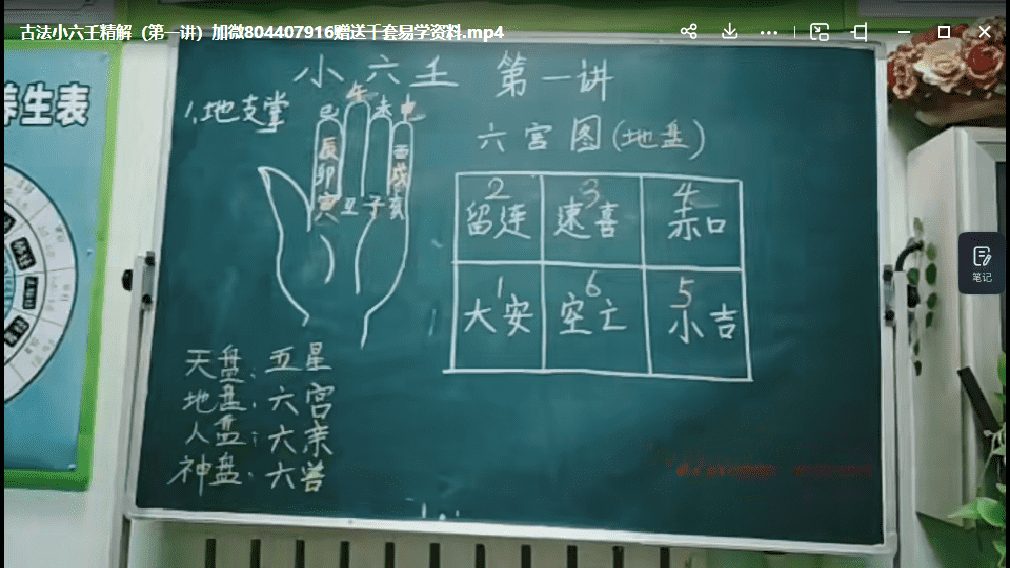 古法小六壬精解（第一讲）加微804407916赠送千套易学资料.mp4
养生表
笔记
小六壬 第一讲
1.地支掌
巳 午 未 申
辰 酉
卯 戌
寅 丑 子 亥
六宫图(地盘)
2 3 4
留连 速喜 赤口
1 6 5
大安 空亡 小吉
天盘:五星
地盘:六宫
人盘:六亲
神盘:六兽